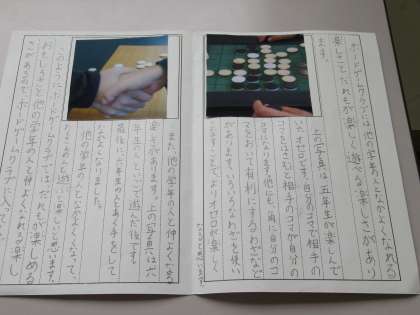 ボードゲームクラブは、他の学年の人となかよくなれる
楽しさとだれもが楽しく遊べる楽しさがあり
ます。
上の写真は五年生が楽しんで
いたオセロです。自分のコマで相手の
コマをはさむと相手のコマが自分の
コマになります。他にも、角に自分のコ
マをおいて有利にするわざなど
があります。いろいろなわざを使い
こなすことでよりオセロが楽しく
なると思います。
また、他の学年の人と仲よくなれる
楽さがあります。上の写真は六
年生の人と遊んだ後です。
最後に六年生の人とあく手をして
なかよくなりました。
他の学年の人となかよくなって、
このようにボードゲームクラブには、だれもが楽しめる
おもしろさと他の学年の人と仲よくなれる楽し
さがあるので、ボードゲームクラブに入って